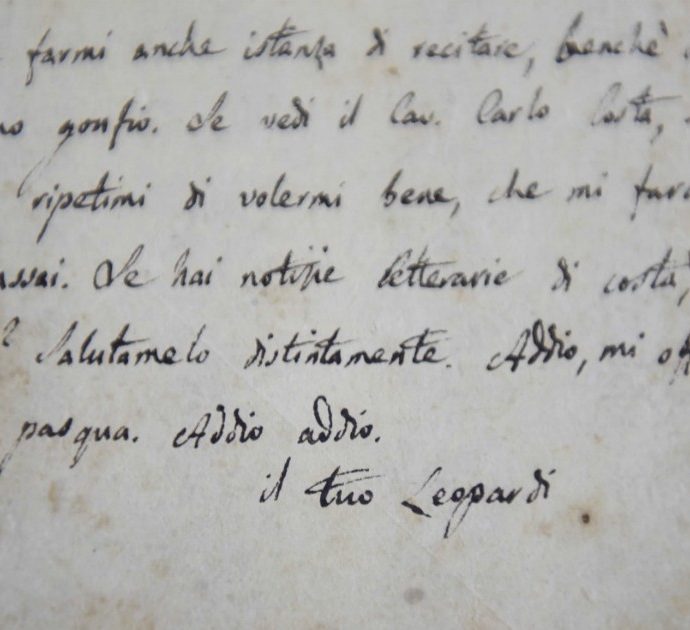 farmi anche istanza di recitare, benchè
gonfio. Se vedi il Cav. Carlo Costa,
ripetimi di volermi bene, che mi
assai. Se hai notizie letterarie di costà,
Salutamelo distintamente. Addio, mi
pasqua. Addio addio.
il tuo Leopardi